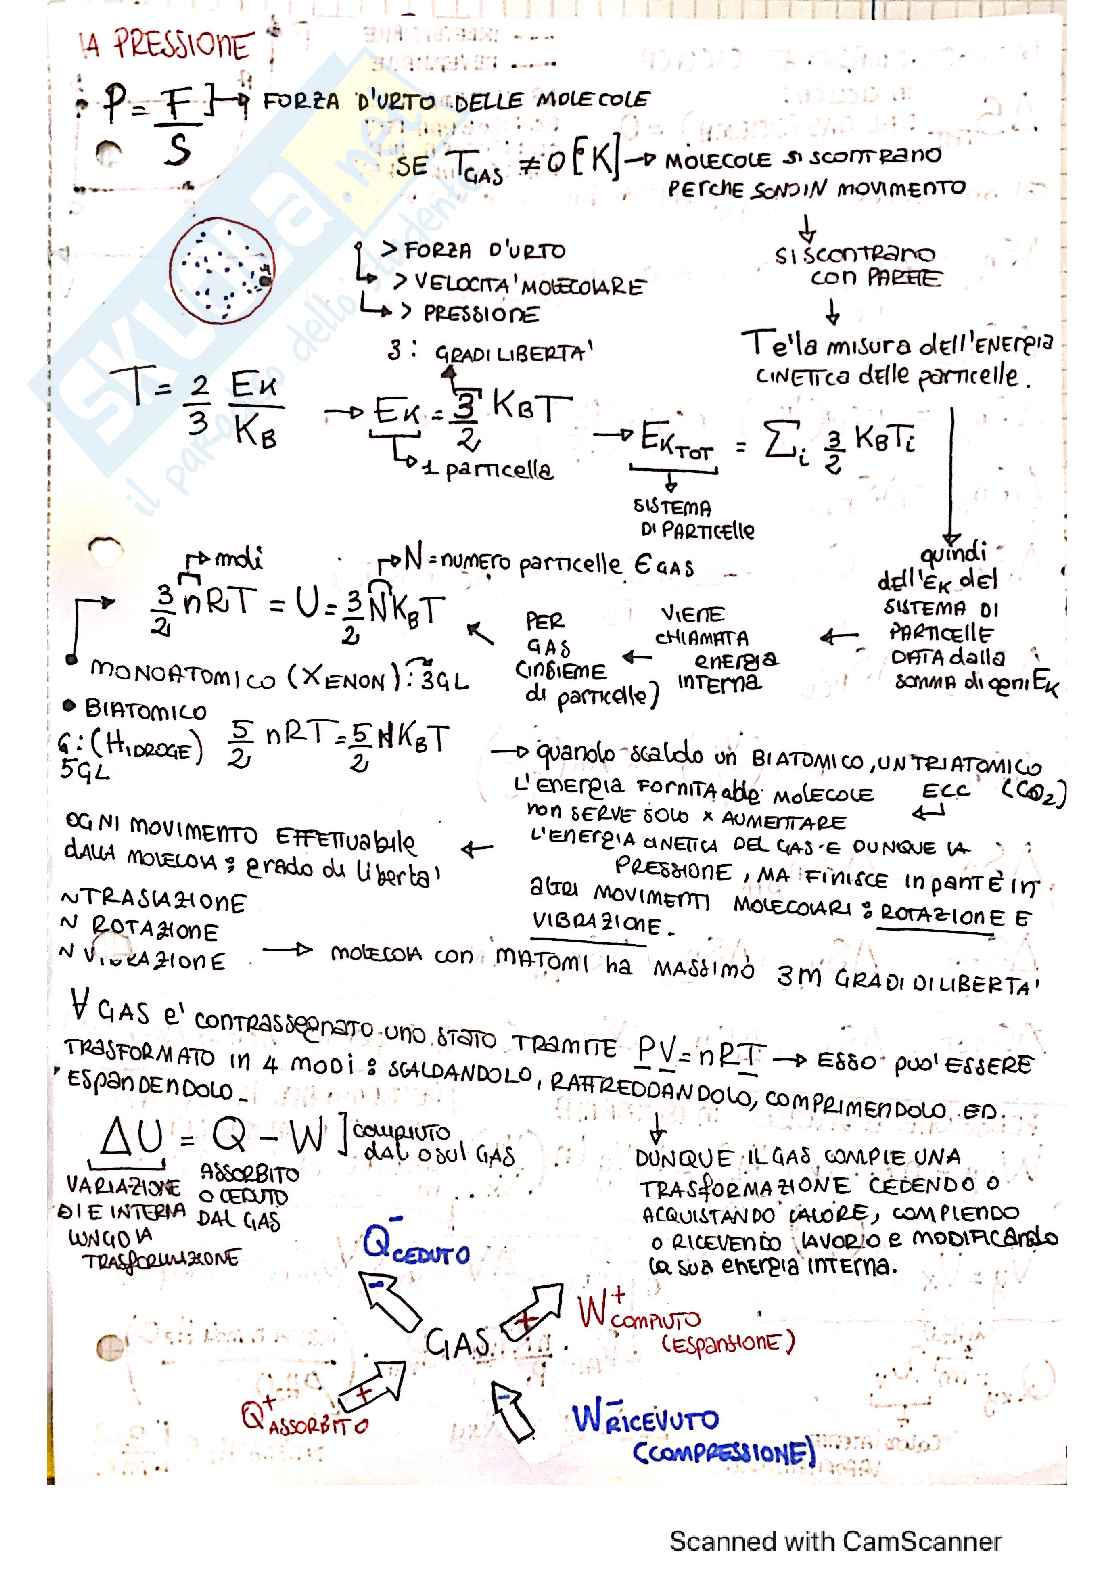 LA PRESSIONE
P = F/S ] → FORZA D'URTO DELLE MOLECOLE
SE T_GAS ≠ 0 [K] → MOLECOLE SI SCONTRANO
PERCHE SONO IN MOVIMENTO
SI SCONTRANO
CON PARETE
> FORZA D'URTO
> VELOCITA' MOLECOLARE
> PRESSIONE
T e' la misura dell'ENERGIA
CINETICA delle particelle.
3 : GRADI LIBERTA'
T = 2/3 E_K/K_B → E_K = 3/2 K_B T → E_K TOT = Σ_i 3/2 K_B T_i
1 particella
SISTEMA
DI PARTICELLE
quindi
dell'E_K del
SISTEMA DI
PARTICELLE
DATA dalla
SOMMA di ogni E_K
VIENE
CHIAMATA
energia
INTERNA
PER
GAS
(INSIEME
di particelle)
moli
N = numero particelle ∈ GAS
3/2 nRT = U = 3/2 N K_B T
MONOATOMICO (XENON): 3GL
BIATOMICO
(HIDROGE) 5/2 nRT = 5/2 N K_B T
5GL
→ quando scaldo un BIATOMICO, UN TRIATOMICO
ECC (CO₂)
L'ENERGIA FORNITA alle MOLECOLE
non SERVE SOLO x AUMENTARE
L'ENERGIA CINETICA DEL GAS E DUNQUE LA
PRESSIONE, MA FINISCE in parte in
altri MOVIMENTI MOLECOLARI : ROTAZIONE E
VIBRAZIONE.
OGNI MOVIMENTO EFFETTUABILE
DALLA MOLECOLA : grado di liberta'
~ TRASLAZIONE
~ ROTAZIONE
~ VIBRAZIONE → MOLECOLA con M ATOMI ha MASSIMO 3M GRADI DI LIBERTA'
∀ GAS e' CONTRASSEGNATO UNO STATO TRAMITE PV = nRT → ESSO PUO' ESSERE
TRASFORMATO in 4 MODI : SCALDANDOLO, RAFFREDDANDOLO, COMPRIMENDOLO ED
ESPANDENDOLO.
ΔU = Q - W ] COMPIUTO
DAL O SUL GAS
VARIAZIONE
DI E INTERNA
LUNGO LA
TRASFORMAZIONE
ASSORBITO
O CEDUTO
DAL GAS
DUNQUE IL GAS COMPIE UNA
TRASFORMAZIONE CEDENDO O
ACQUISTANDO CALORE, COMPIENDO
O RICEVENDO LAVORIO e MODIFICANDO
la sua energia interna.
Q⁻ CEDUTO
W⁺ COMPIUTO
(ESPANSIONE)
GAS
Q⁺ ASSORBITO
W⁻ RICEVUTO
(COMPRESSIONE)
Scanned with CamScanner